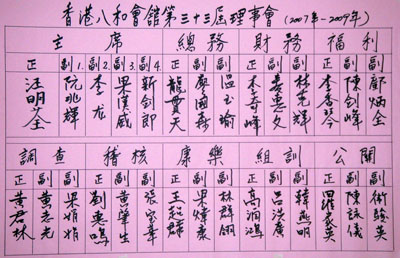 香港八和會館第三十三屆理事會 (2007年－2009年)
主席 總務 財務 福利
正 副1. 2. 3. 4. 正 副 副 正 副 副 正 副 副
汪明荃 阮兆輝 李龙 梁漢威 新劍郎 龍貫天 廖國森 温玉瑜 李奇峰 林克輝 李香琴 陳剑峰 鄺炳全
調查 稽核 康樂 組訓 公關
正 副 副 正 副 副 正 副 副 正 副 副 正 副 副
黃君林 黃志光 梁娟娟 劉惠鳴 黃肇生 王超群 梁煒康 林群翎 高潤鴻 呂洪廣 韓燕明 羅家英 陳詠儀 衛駿英